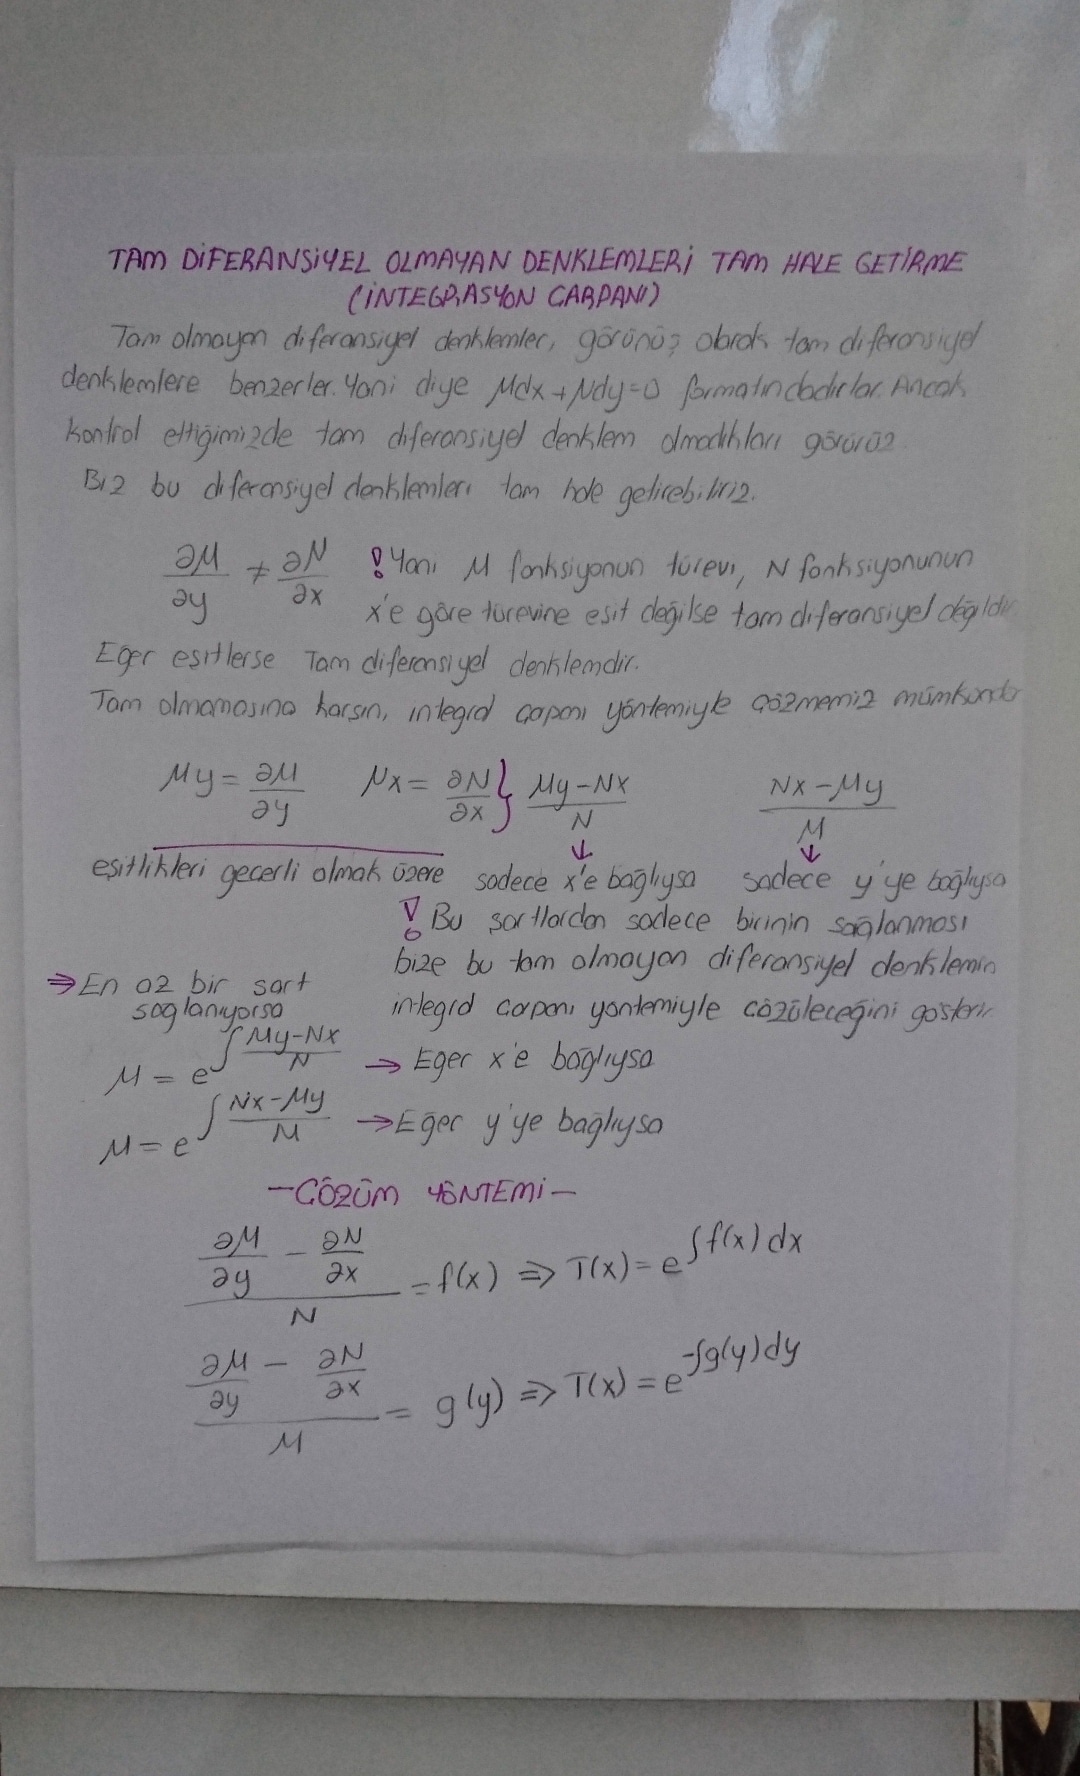 TAM DİFERANSİYEL OLMAYAN DENKLEMLERİ TAM HALE GETİRME
(İNTEGRASYON CARPANI)
Tam olmayan diferansiyel denklemler, görünüş olarak tam diferansiyel
denklemlere benzerler. Yani diye Mdx + Ndy = 0 formatındadırlar. Ancak
kontrol ettiğimizde tam diferansiyel denklem olmadıkları görürüz.
Biz bu diferansiyel denklemleri tam hale getirebiliriz.
∂M/∂y ≠ ∂N/∂x ! Yani M fonksiyonun türevi, N fonksiyonunun
x'e göre türevine esit değilse tam diferansiyel değildir.
Eğer esitlerse Tam diferensiyel denklemdir.
Tam olmamasına karsın, integral çarpanı yöntemiyle çözmemiz mümkündür
My = ∂M/∂y Nx = ∂N/∂x } (My - Nx)/N (Nx - My)/M
esitlikleri gecerli olmak üzere ↓ sadece x'e bağlıysa ↓ sadece y'ye bağlıysa
! Bu sartlardan sadece birinin sağlanması
bize bu tam olmayan diferansiyel denklemin
⇒ En az bir sart
sağlanıyorsa
integral carpanı yontemiyle cözüleceğini gösterir.
M = e^∫(My-Nx)/N → Eger x'e bağlıysa
M = e^∫(Nx-My)/M → Eğer y'ye bağlıysa
- CÖZÜM YÖNTEMİ -
(∂M/∂y - ∂N/∂x)/N = f(x) ⇒ T(x) = e^∫f(x)dx
(∂M/∂y - ∂N/∂x)/M = g(y) ⇒ T(x) = e^-∫g(y)dy